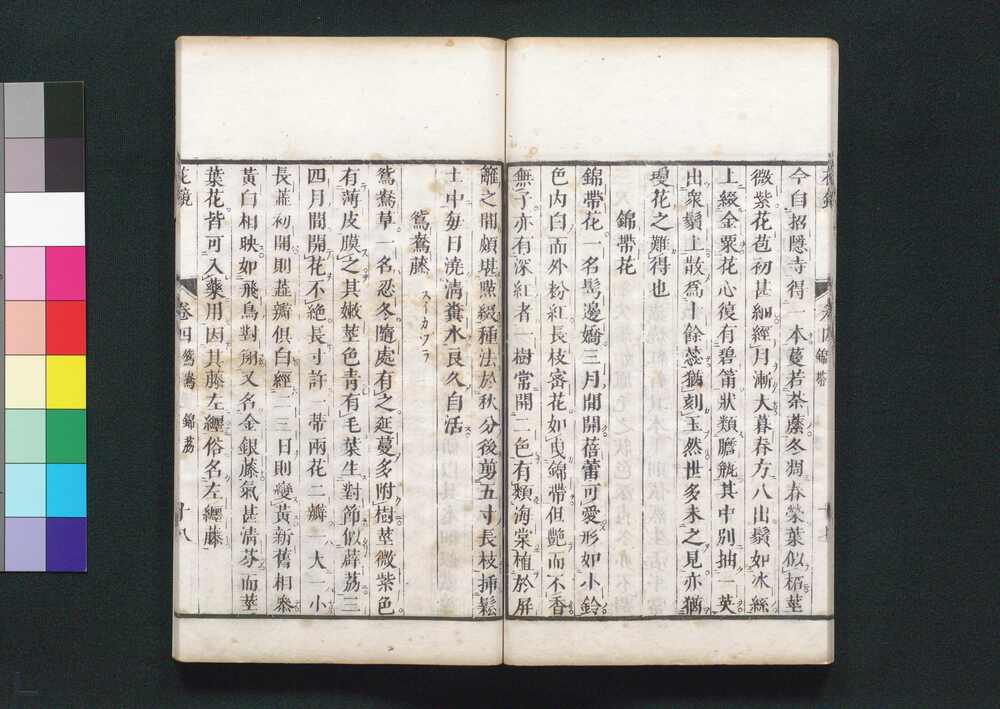 今自招隱寺得一本蔓若荼䕷冬凋春榮葉似栢莖
微紫花苞初甚細經月漸大暮春方八出鬚如冰絲
上綴金粟花心復有碧筩狀類膽瓶其中別抽一英
出衆鬚上散爲十餘蕊猶刻玉然世多未之見亦猶
瓊花之難得也
錦帶花
錦帶花一名髩邊嬌三月間開蓓蕾可愛形如小鈴
色内白而外粉紅長枝密花如曳錦帶但艷而不香
無子亦有深紅者一樹常開二色有類海棠植於屏
籬之間頗堪㸃綴種法於秋分後剪五寸長枝挿鬆
土中每日澆清糞水良久自活
鴛鴦藤 スイカヅラ
鴛鴦草一名忍冬隨處有之延蔓多附樹莖微紫色
有薄皮膜之其嫩莖色青有毛葉生對節似薜茘三
四月間開花不絕長寸許一蒂兩花二瓣一大一小
長蕋初開則蕋瓣俱白經二三日則變黃新舊相叅
黃白相映如飛鳥對翔又名金銀藤氣甚清芬而莖
葉花皆可入藥用因其藤左纏俗名左纏藤
花鏡 卷四 鴛鴦 錦茘 十八